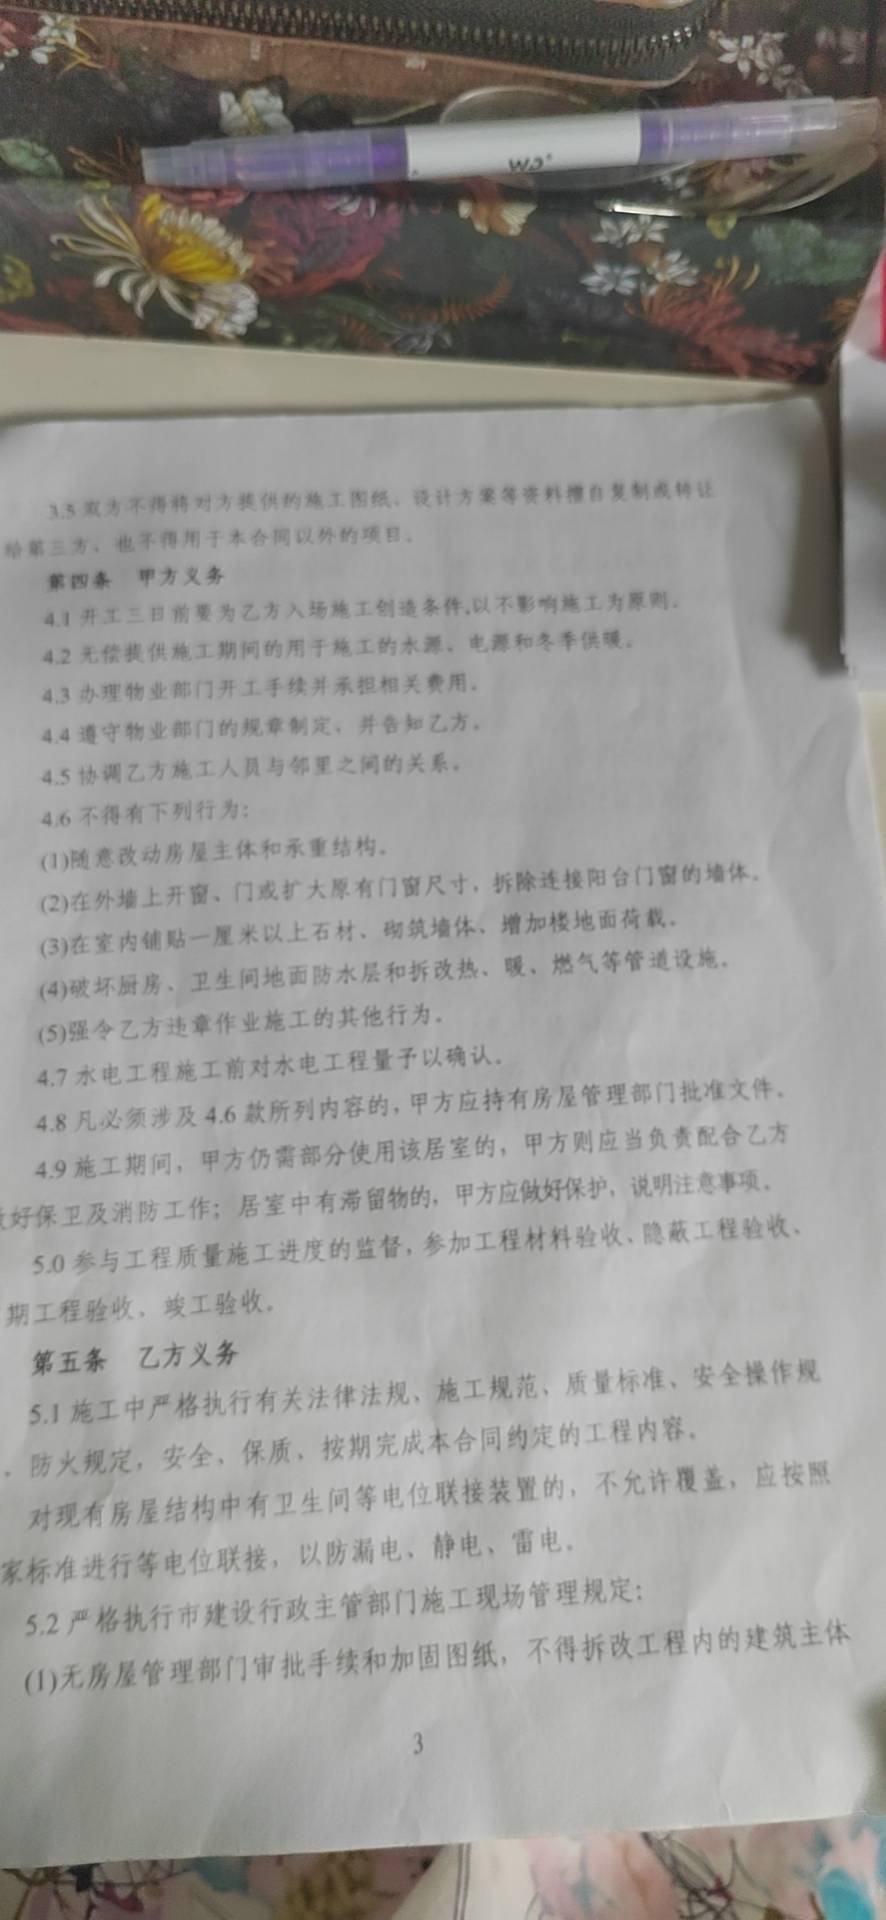 W9
3.5 双方不得将对方提供的施工图纸、设计方案等资料擅自复制或转让
给第三方，也不得用于本合同以外的项目。
第四条 甲方义务
4.1 开工三日前要为乙方入场施工创造条件,以不影响施工为原则。
4.2 无偿提供施工期间的用于施工的水源、电源和冬季供暖。
4.3 办理物业部门开工手续并承担相关费用。
4.4 遵守物业部门的规章制定、并告知乙方。
4.5 协调乙方施工人员与邻里之间的关系。
4.6 不得有下列行为：
(1)随意改动房屋主体和承重结构。
(2)在外墙上开窗、门或扩大原有门窗尺寸，拆除连接阳台门窗的墙体。
(3)在室内铺贴一厘米以上石材、砌筑墙体、增加楼地面荷载。
(4)破坏厨房、卫生间地面防水层和拆改热、暖、燃气等管道设施。
(5)强令乙方违章作业施工的其他行为。
4.7 水电工程施工前对水电工程量予以确认。
4.8 凡必须涉及 4.6 款所列内容的，甲方应持有房屋管理部门批准文件。
4.9 施工期间，甲方仍需部分使用该居室的，甲方则应当负责配合乙方
好保卫及消防工作；居室中有滞留物的，甲方应做好保护，说明注意事项。
5.0 参与工程质量施工进度的监督，参加工程材料验收、隐蔽工程验收、
期工程验收、竣工验收。
第五条 乙方义务
5.1 施工中严格执行有关法律法规、施工规范、质量标准、安全操作规
、防火规定，安全、保质、按期完成本合同约定的工程内容。
对现有房屋结构中有卫生间等电位联接装置的，不允许覆盖，应按照
家标准进行等电位联接，以防漏电、静电、雷电。
5.2 严格执行市建设行政主管部门施工现场管理规定：
(1)无房屋管理部门审批手续和加固图纸，不得拆改工程内的建筑主体
3